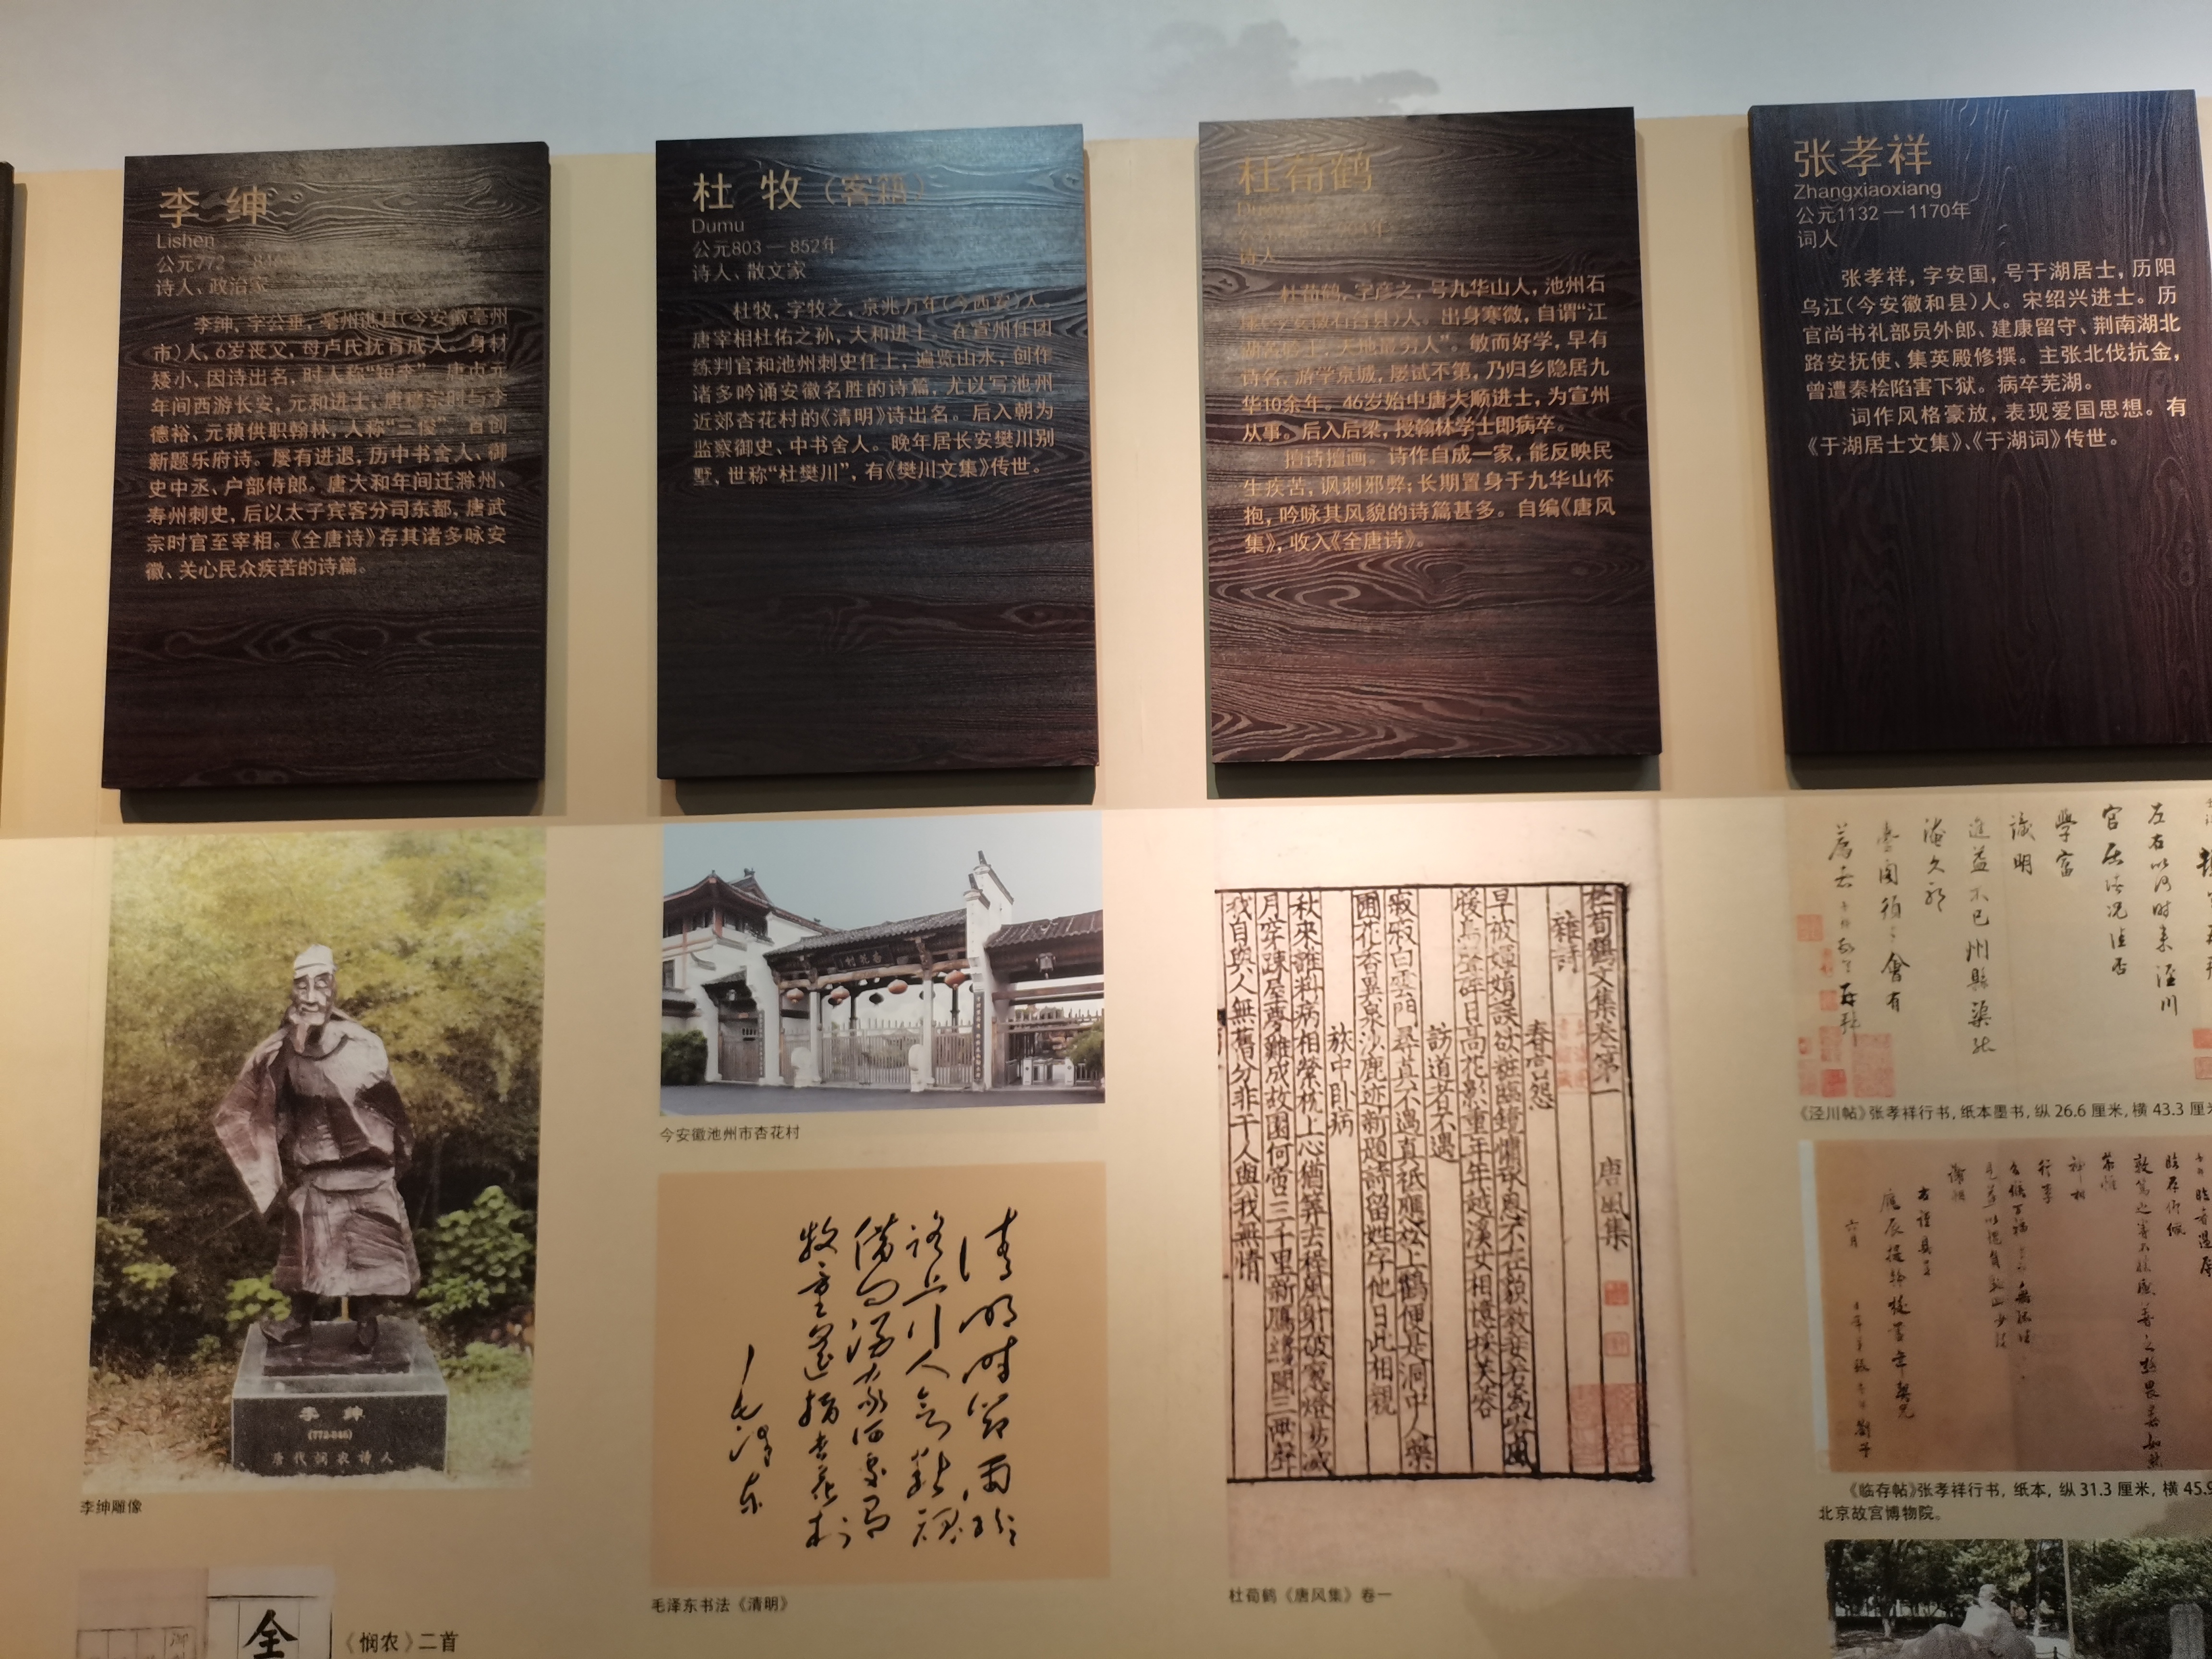 李 绅
Lishen
公元772
诗人、政治家
李绅,字公垂,亳州谯县(今安徽亳州
市)人,6岁丧父,母卢氏抚育成人。身材
矮小,因诗出名,时人称“短李”。唐贞元
年间西游长安,元和进士,唐穆宗时与李
德裕、元稹供职翰林,人称“三俊”。首创
新题乐府诗。屡有进退,历中书舍人、御
史中丞、户部侍郎。唐大和年间迁滁州、
寿州刺史,后以太子宾客分司东都,唐武
宗时官至宰相。《全唐诗》存其诸多咏安
徽、关心民众疾苦的诗篇。
李 绅
(772-846)
唐代悯农诗人
李绅雕像
全
《悯农》二首
杜 牧(客籍)
Dumu
公元803 — 852年
诗人、散文家
杜牧,字牧之,京兆万年(今西安)人。
唐宰相杜佑之孙,大和进士。在宣州任团
练判官和池州刺史任上,遍览山水,创作
诸多吟诵安徽名胜的诗篇,尤以写池州
近郊杏花村的《清明》诗出名。后入朝为
监察御史、中书舍人。晚年居长安樊川别
墅,世称“杜樊川”,有《樊川文集》传世。
今安徽池州市杏花村
清明时节雨纷纷
路上行人欲断魂
借问酒家何处有
牧童遥指杏花村
毛泽东
毛泽东书法《清明》
杜荀鹤
诗人
杜荀鹤,字彦之,号九华山人,池州石
埭(今安徽石台县)人。出身寒微,自谓“江
湖苦吟士,天地最穷人”。敏而好学,早有
诗名,游学京城,屡试不第,乃归乡隐居九
华10余年。46岁始中唐大顺进士,为宣州
从事。后入后梁,授翰林学士即病卒。
擅诗擅画。诗作自成一家,能反映民
生疾苦,讽刺邪弊;长期置身于九华山怀
抱,吟咏其风貌的诗篇甚多。自编《唐风
集》,收入《全唐诗》。
杜荀鶴文集卷第一 唐風集
雜詩
春宫怨
早被嬋娟誤欲粧臨鏡慵承恩不在貌教妾若為容風
暖鳥聲碎日高花影重年年越溪女相憶採芙蓉
訪道者不遇
寂寂白雲門尋真不遇真祇應松上鶴便是洞中人藥
圃花香異泉沙鹿迹新題詩留姓字他日此相親
旅中卧病
秋來誰料病相縈枕上心猶算去程風射破窓燈易滅
月穿疎屋夢難成故園何啻三千里新鴈纔聞三兩聲
我自與人無舊分非干人與我無情
杜荀鹤《唐风集》卷一
张孝祥
Zhangxiaoxiang
公元1132 — 1170年
词人
张孝祥,字安国,号于湖居士,历阳
乌江(今安徽和县)人。宋绍兴进士。历
官尚书礼部员外郎、建康留守、荆南湖北
路安抚使、集英殿修撰。主张北伐抗金,
曾遭秦桧陷害下狱。病卒芜湖。
词作风格豪放,表现爱国思想。有
《于湖居士文集》、《于湖词》传世。
《泾川帖》张孝祥行书,纸本墨书,纵 26.6 厘米,横 43.3 厘米
《临存帖》张孝祥行书,纸本,纵 31.3 厘米,横 45.9
北京故宫博物院。